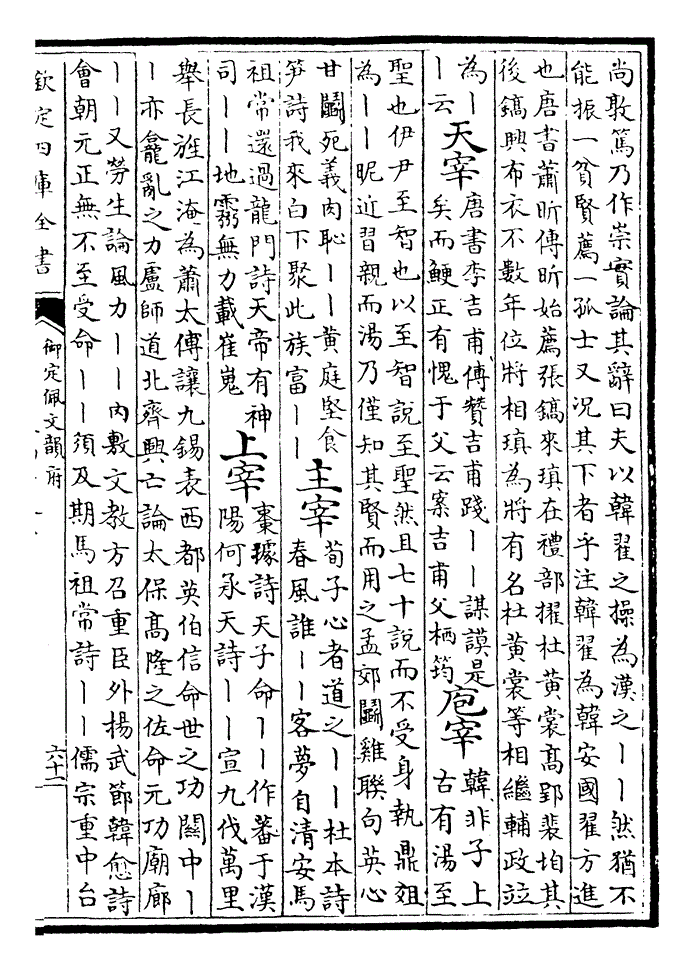 尚敦篤乃作崇實論其辭曰夫以韓翟之操為漢之丨丨然猶不
能振一貧賢薦一孤士又況其下者乎注韓翟為韓安國翟方進
也唐書蕭昕傳昕始薦張鎬來瑱在禮部擢杜黃裳高郢裴垍其
後鎬興布衣不數年位將相瑱為將有名杜黃裳等相繼輔政竝
為丨
丨云
天宰
唐書李吉甫傳贊吉甫踐丨丨謀謨是
矣而鯁正有愧于父云案吉甫父栖筠
庖宰
韓非子上
古有湯至
聖也伊尹至智也以至智說至聖然且七十說而不受身執鼎俎
為丨丨昵近習親而湯乃僅知其賢而用之孟郊鬭雞聯句英心
甘鬭死義肉恥丨丨黃庭堅食
笋詩我來白下聚此族富丨丨
主宰
荀子心者道之丨丨杜本詩
春風誰丨丨客夢自清安馬
祖常還過龍門詩天帝有神
司丨丨地靈無力載崔嵬
上宰
棗據詩天子命丨丨作蕃于漢
陽何承天詩丨丨宣九伐萬里
舉長旌江淹為蕭太傅讓九錫表西都英伯信命世之功關中丨
丨亦龕亂之力盧師道北齊興亡論太保高隆之佐命元功廟廊
丨丨又勞生論風力丨丨內敷文教方召重臣外揚武節韓愈詩
會朝元正無不至受命丨丨須及期馬祖常詩丨丨儒宗重中台
欽定四庫全書
御定佩文韻府
六十二